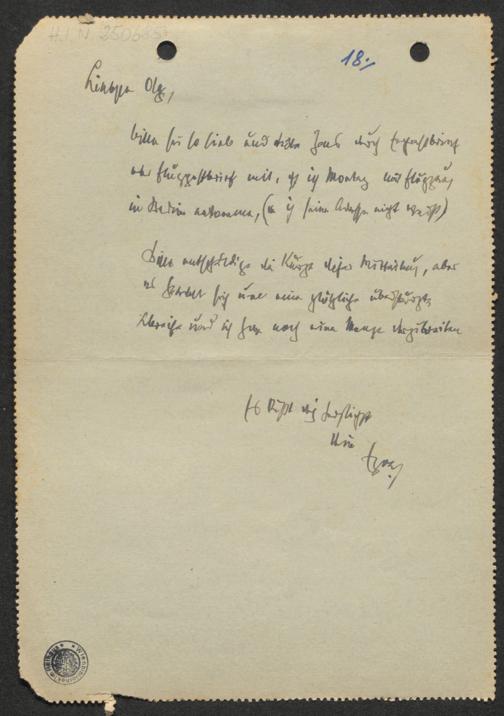 H.I.N. 250685
18./
Liebste Olga,
bitte sei so lieb und teile Hans durch Expressbrief
oder Flugpostbrief mit, dass ich Montag mit Flugzeug
in Berlin ankomme, (da ich seine Adresse nicht weiss)
Bitte entschuldige die Kürze dieser Mitteilung, aber
es handelt sich um eine plötzliche überstürzte
Abreise und ich habe noch eine Menge vorzubereiten
Es küsst dich herzlichst